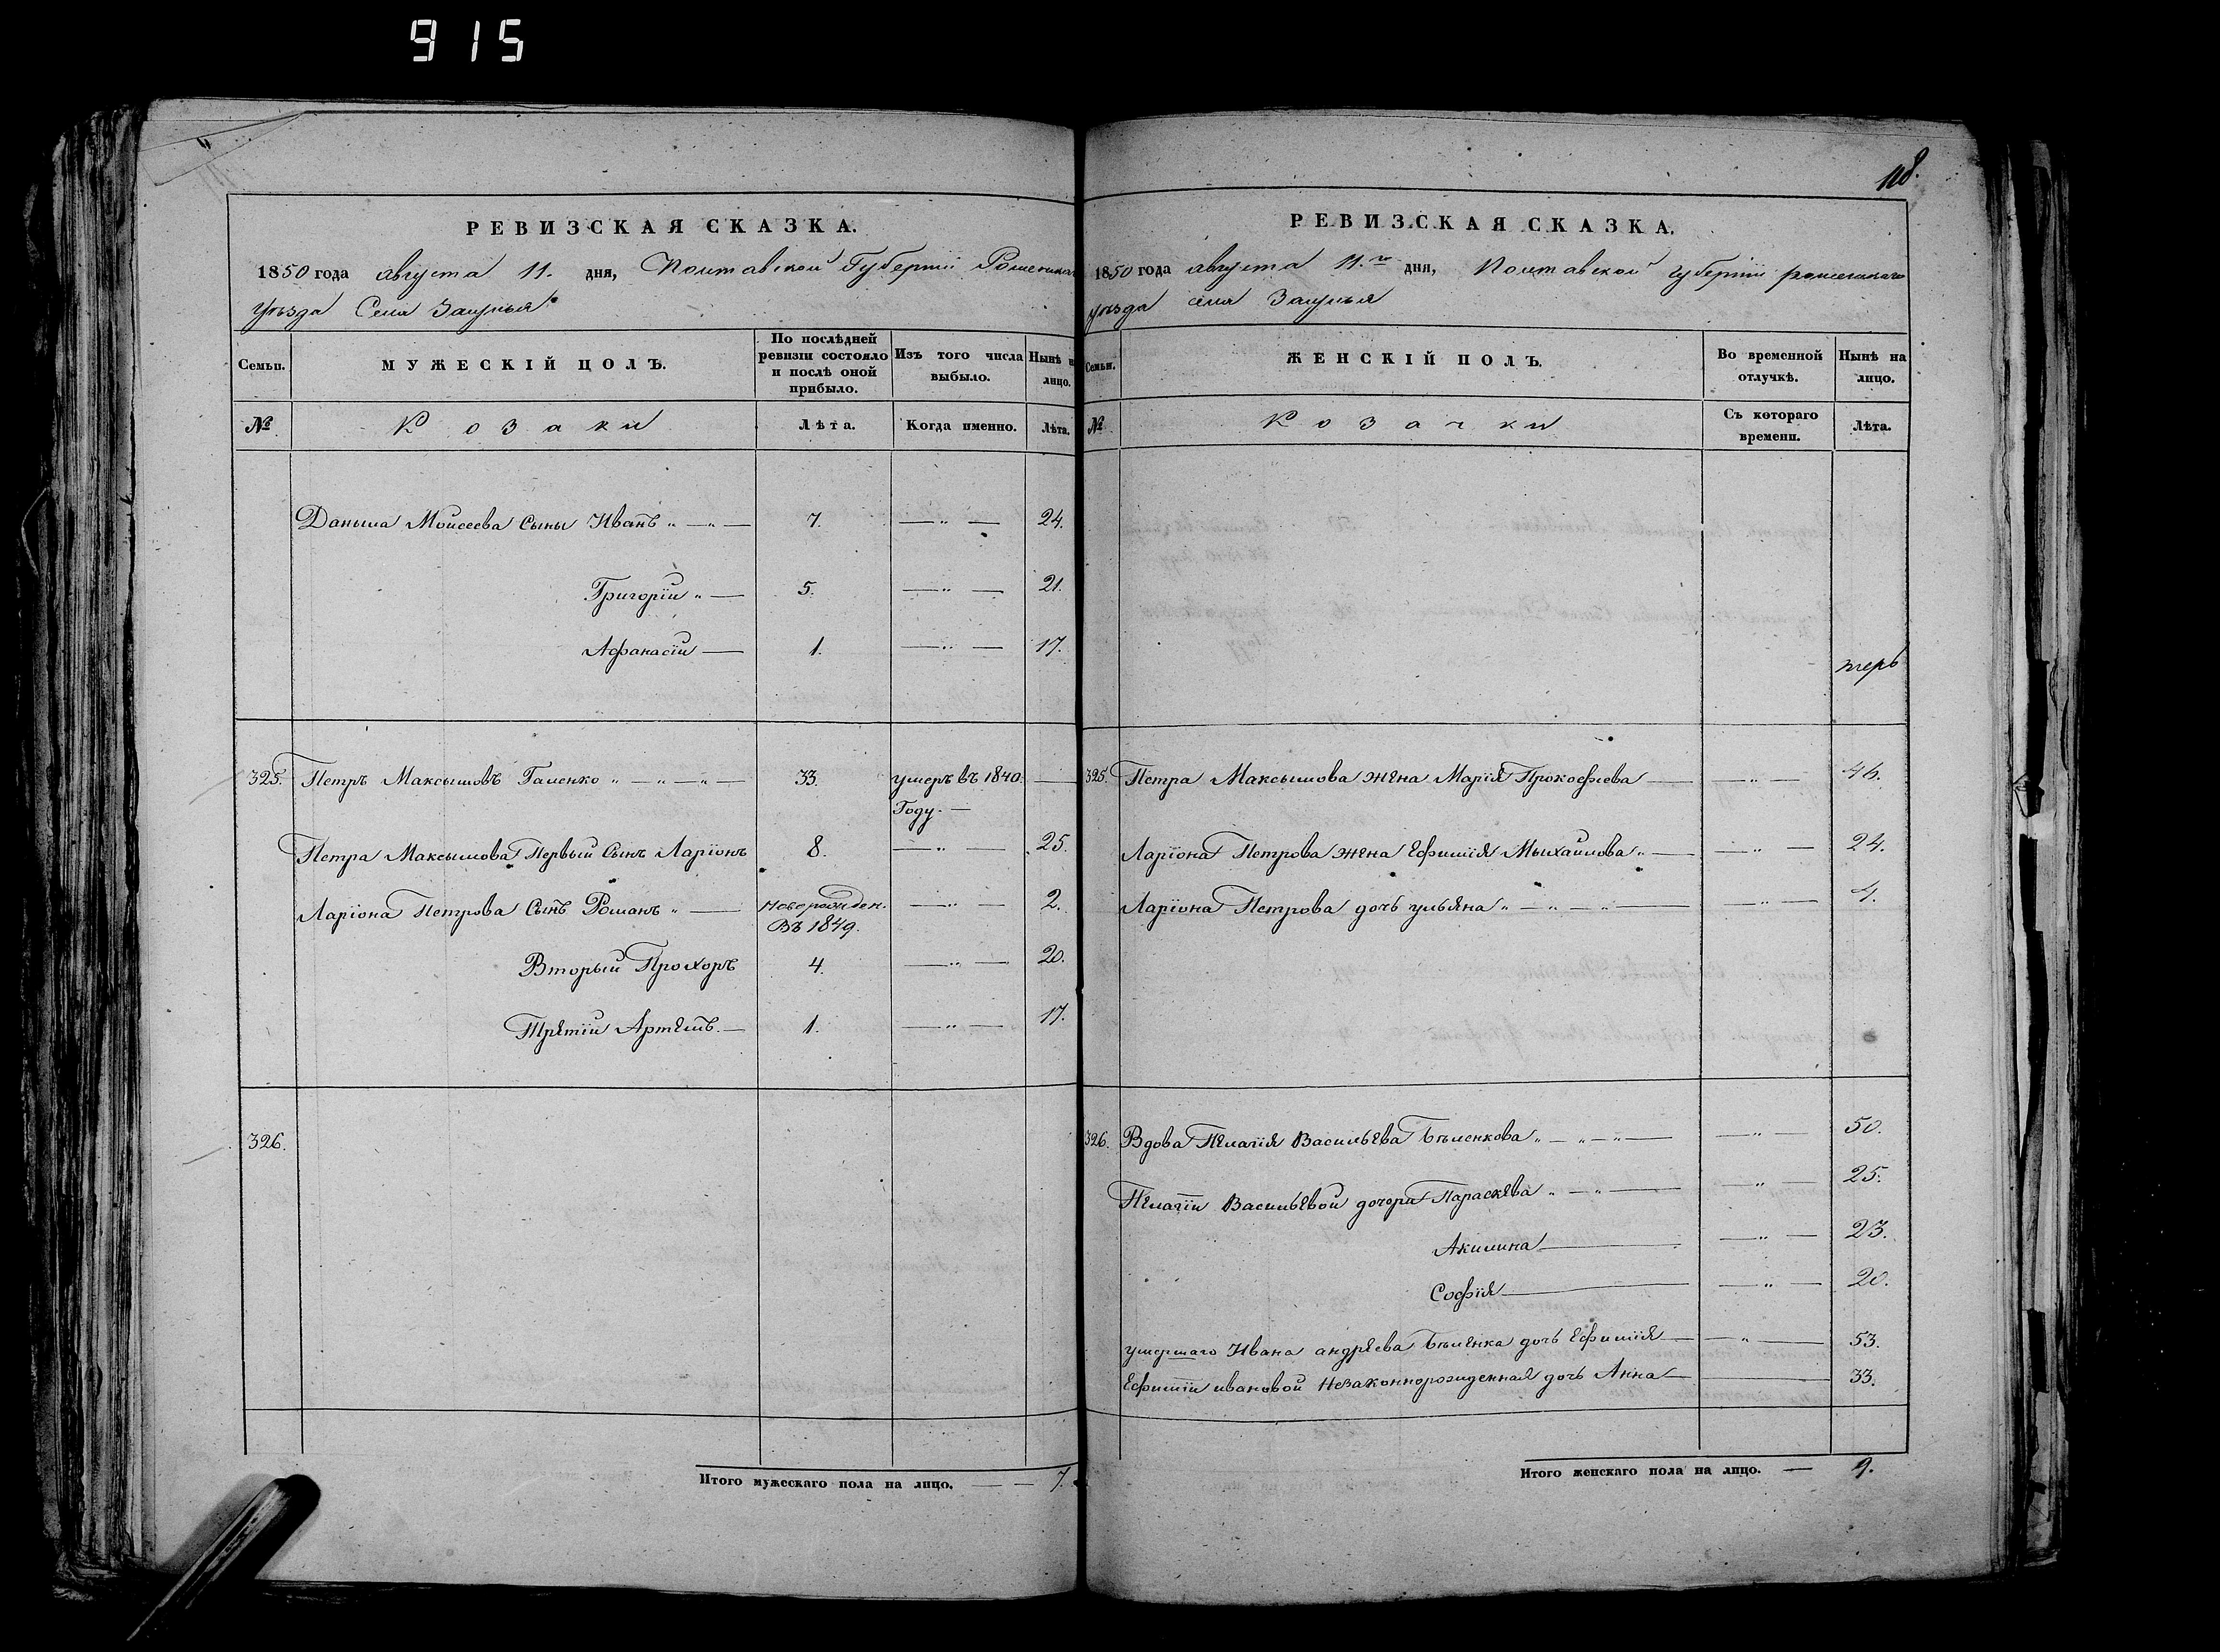 915
118.
РЕВИЗСКАЯ СКАЗКА.
1850 года августа 11. дня, Полтавской Губерніи Роменскаго
уѣзда Села
Семьи. МУЖЕСКІЙ ПОЛЪ. По послѣдней ревизіи состояло и послѣ оной прибыло. Изъ того числа выбыло. Нынѣ на лицо.
№ Козаки Лѣта. Когда именно. Лѣта.
Данила Моисеева Сыны Иванъ 7. 24.
Григорій 5. 21.
Афанасій 1. 17.
325. Петръ Максымовъ Галенко 33. умеръ въ 1840.
Году.
Петра Максымова Первый Сынъ Ларіонъ 8. 25.
Ларіона Петрова Сынъ Романъ Новорожден. 2.
Въ 1849.
Вторый Прохоръ 4. 20.
Третій Артемъ. 1. 17.
326.
Итого мужескаго пола на лицо. 7.
РЕВИЗСКАЯ СКАЗКА.
1850 года августа 11.го дня, Полтавской губерніи роменскаго
уѣзда села
Семьи. ЖЕНСКІЙ ПОЛЪ. Во временной отлучкѣ. Нынѣ на лицо.
№ Козачки Съ котораго времени. Лѣта.
325. Петра Максымова жена Марія Прокофіева 46.
Ларіона Петрова жена Ефимія Мыхайлова 24.
Ларіона Петрова дочь ульяна 4.
326. Вдова Пелагія Васильева Бѣленкова 50.
Пелагіи Васильевой дочери Параскева 25.
Акилина 23.
Софія 20.
умершаго Ивана андреева Бѣленка дочь Ефимія 53.
Ефиміи ивановой Незаконнорожденная дочь Анна 33.
Итого женскаго пола на лицо. 9.